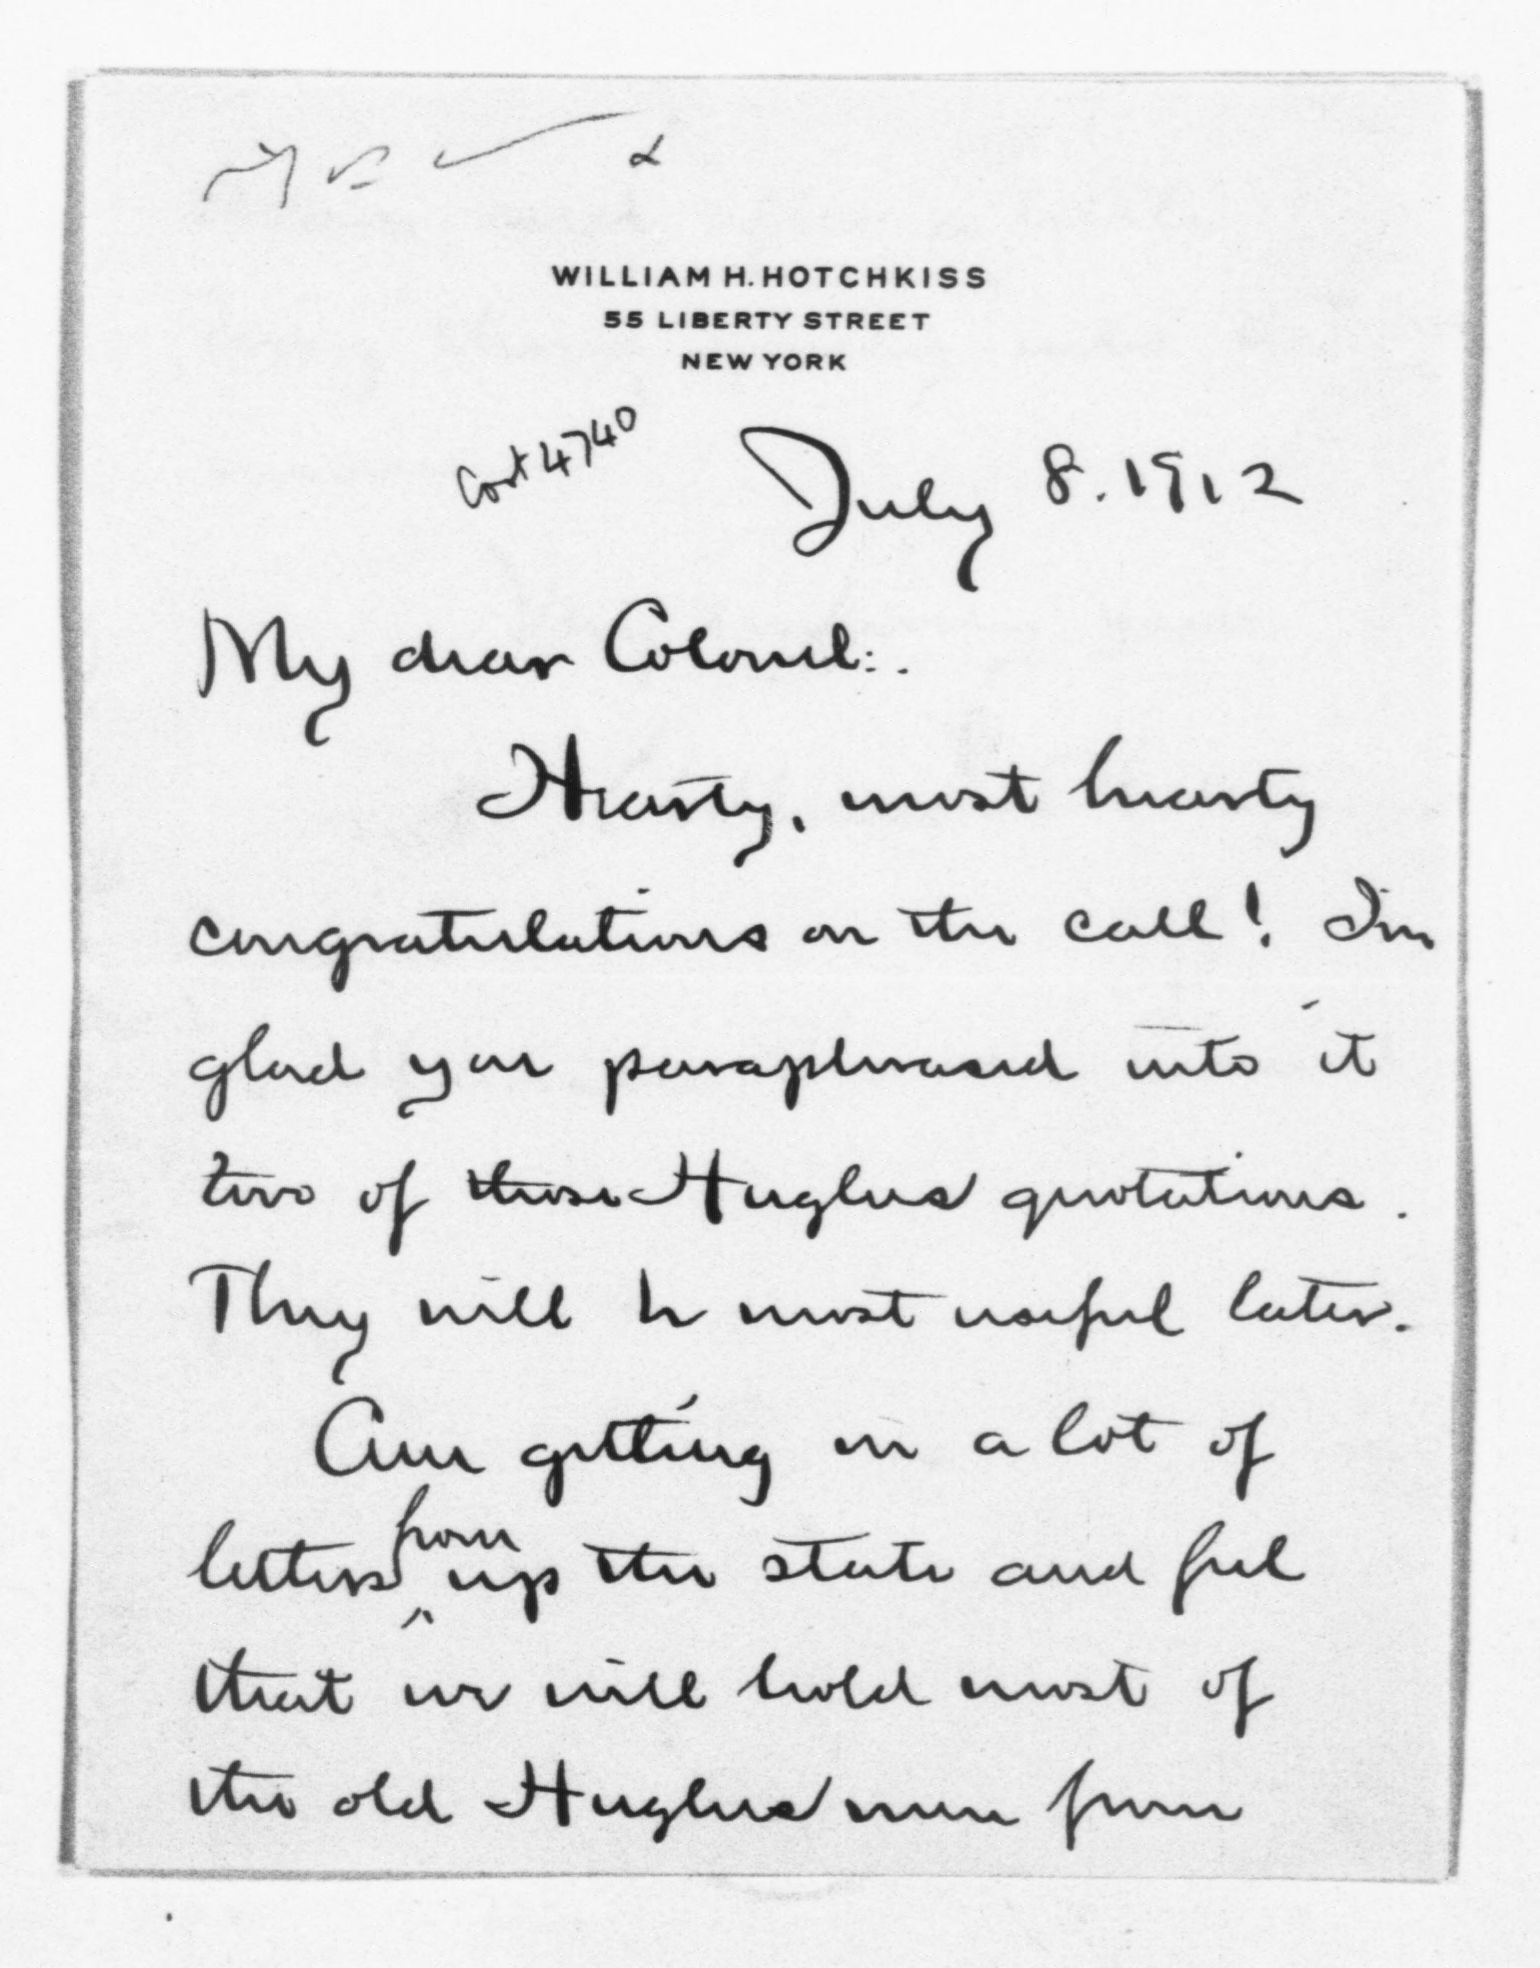 WILLIAM H. HOTCHKISS
55 LIBERTY STREET
NEW YORK
Cort 4740
July 8. 1912
My dear Colonel:.
Hearty, most hearty
congratulations on the call! I'm
glad you paraphrased into it
two of those Hughes quotations.
They will be most useful later.
Am getting in a lot of
letters from up the state and feel
that we will hold most of
the old Hughes men from